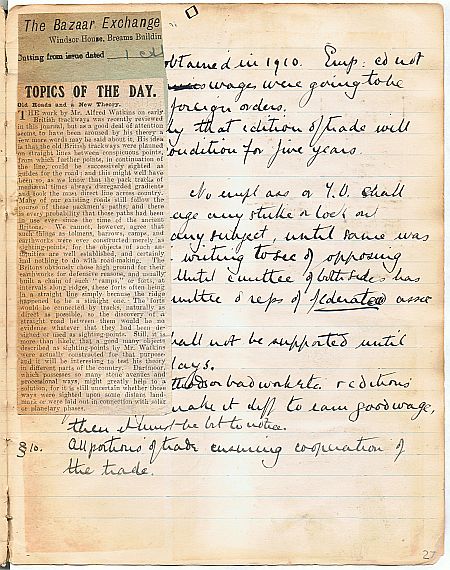 The Bazaar Exchange
Windsor House, Breams Buildin
Cutting from issue dated
TOPICS OF THE DAY.
Old Roads and a New Theory.
THE work by Mr. Alfred Watkins on early
British trackways was recently reviewed
in this journal, but as a good deal of attention
seems to have been aroused by his theory a
few more words may be said about it. His idea
is that the old British trackways were planned
on straight lines between conspicuous points,
from which further points, in continuation of
the line, could be successively sighted as
guides for the road; and this might well have
been so, as we know that the pack tracks of
mediæval times always disregarded gradients
and took the most direct line across country.
Many of our existing roads still follow the
course of those packmen's paths, and there
is every probability that those paths had been
in use ever since the time of the ancient
Britons. We cannot, however, agree that
such things as beacons, barrows, camps, and
earthworks were ever constructed merely as
sighting-points, for the objects of such an-
tiquities are well established, and certainly
had nothing to do with road-making. The
Britons obviously chose high ground for their
earthworks for defensive reasons, and usually
built a chain of such "camps," or forts, at
intervals along ridges, these forts often being
in a straight line simply because the ridge
happened to be a straight one. The forts
would be connected by tracks, naturally as
direct as possible, so the discovery of a
straight road between them would be no
evidence whatever that they had been de-
signed or used as sighting-points. Still, it is
more than likely that a good many objects
described as sighting-points by Mr. Watkins
were actually constructed for that purpose
and it will be interesting to test his theory
in different parts of the country. Dartmoor,
which possesses so many stone avenues and
processional ways, might greatly help to a
solution, for it is still uncertain whether those
ways were sighted upon some distant land-
mark or were laid out in connection with solar
or planetary phases.
obtained in 1910. Emp: cd not
wages were going to be
foreign orders.
that cdition of trade will
condition for five years.
No empl ass or T.U. shall
age any strike or lock out
any subject, until same was
writing to sec of opposing
Until cmittee of both sides has
mittee & reps of federated assoc
hall not be supported until
days.
or bad work etc. cditions
make it diff to earn good wage,
then it must be
§ 10. All portions of trade ensuring cooperation of
the trade.
27